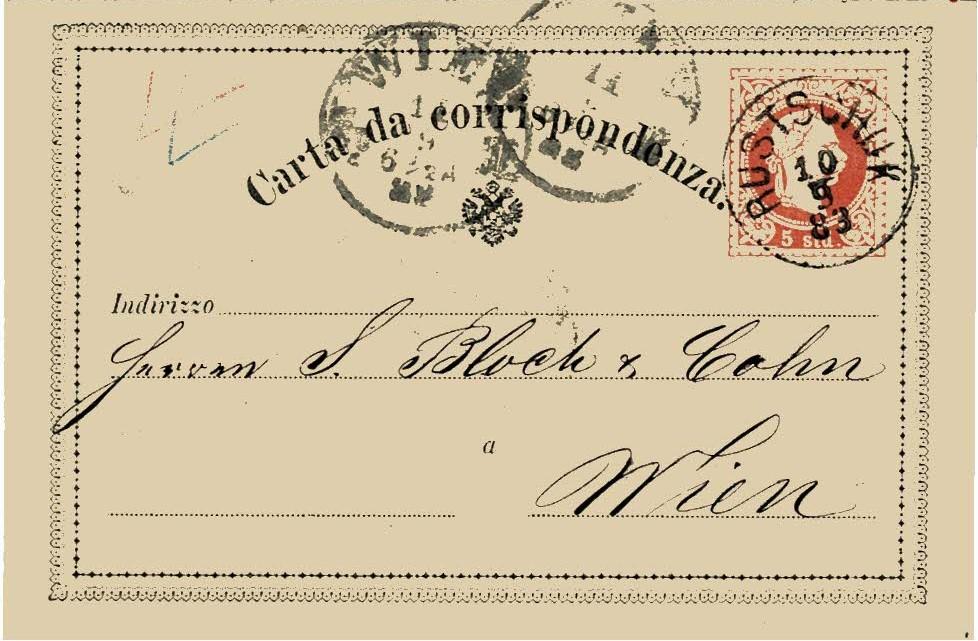 WIEN
Carta da corrispondenza.
RUSTSCHUK
10
5
83
5 sld.
Indirizzo
Herren S. Bloch & Cohn
a
Wien